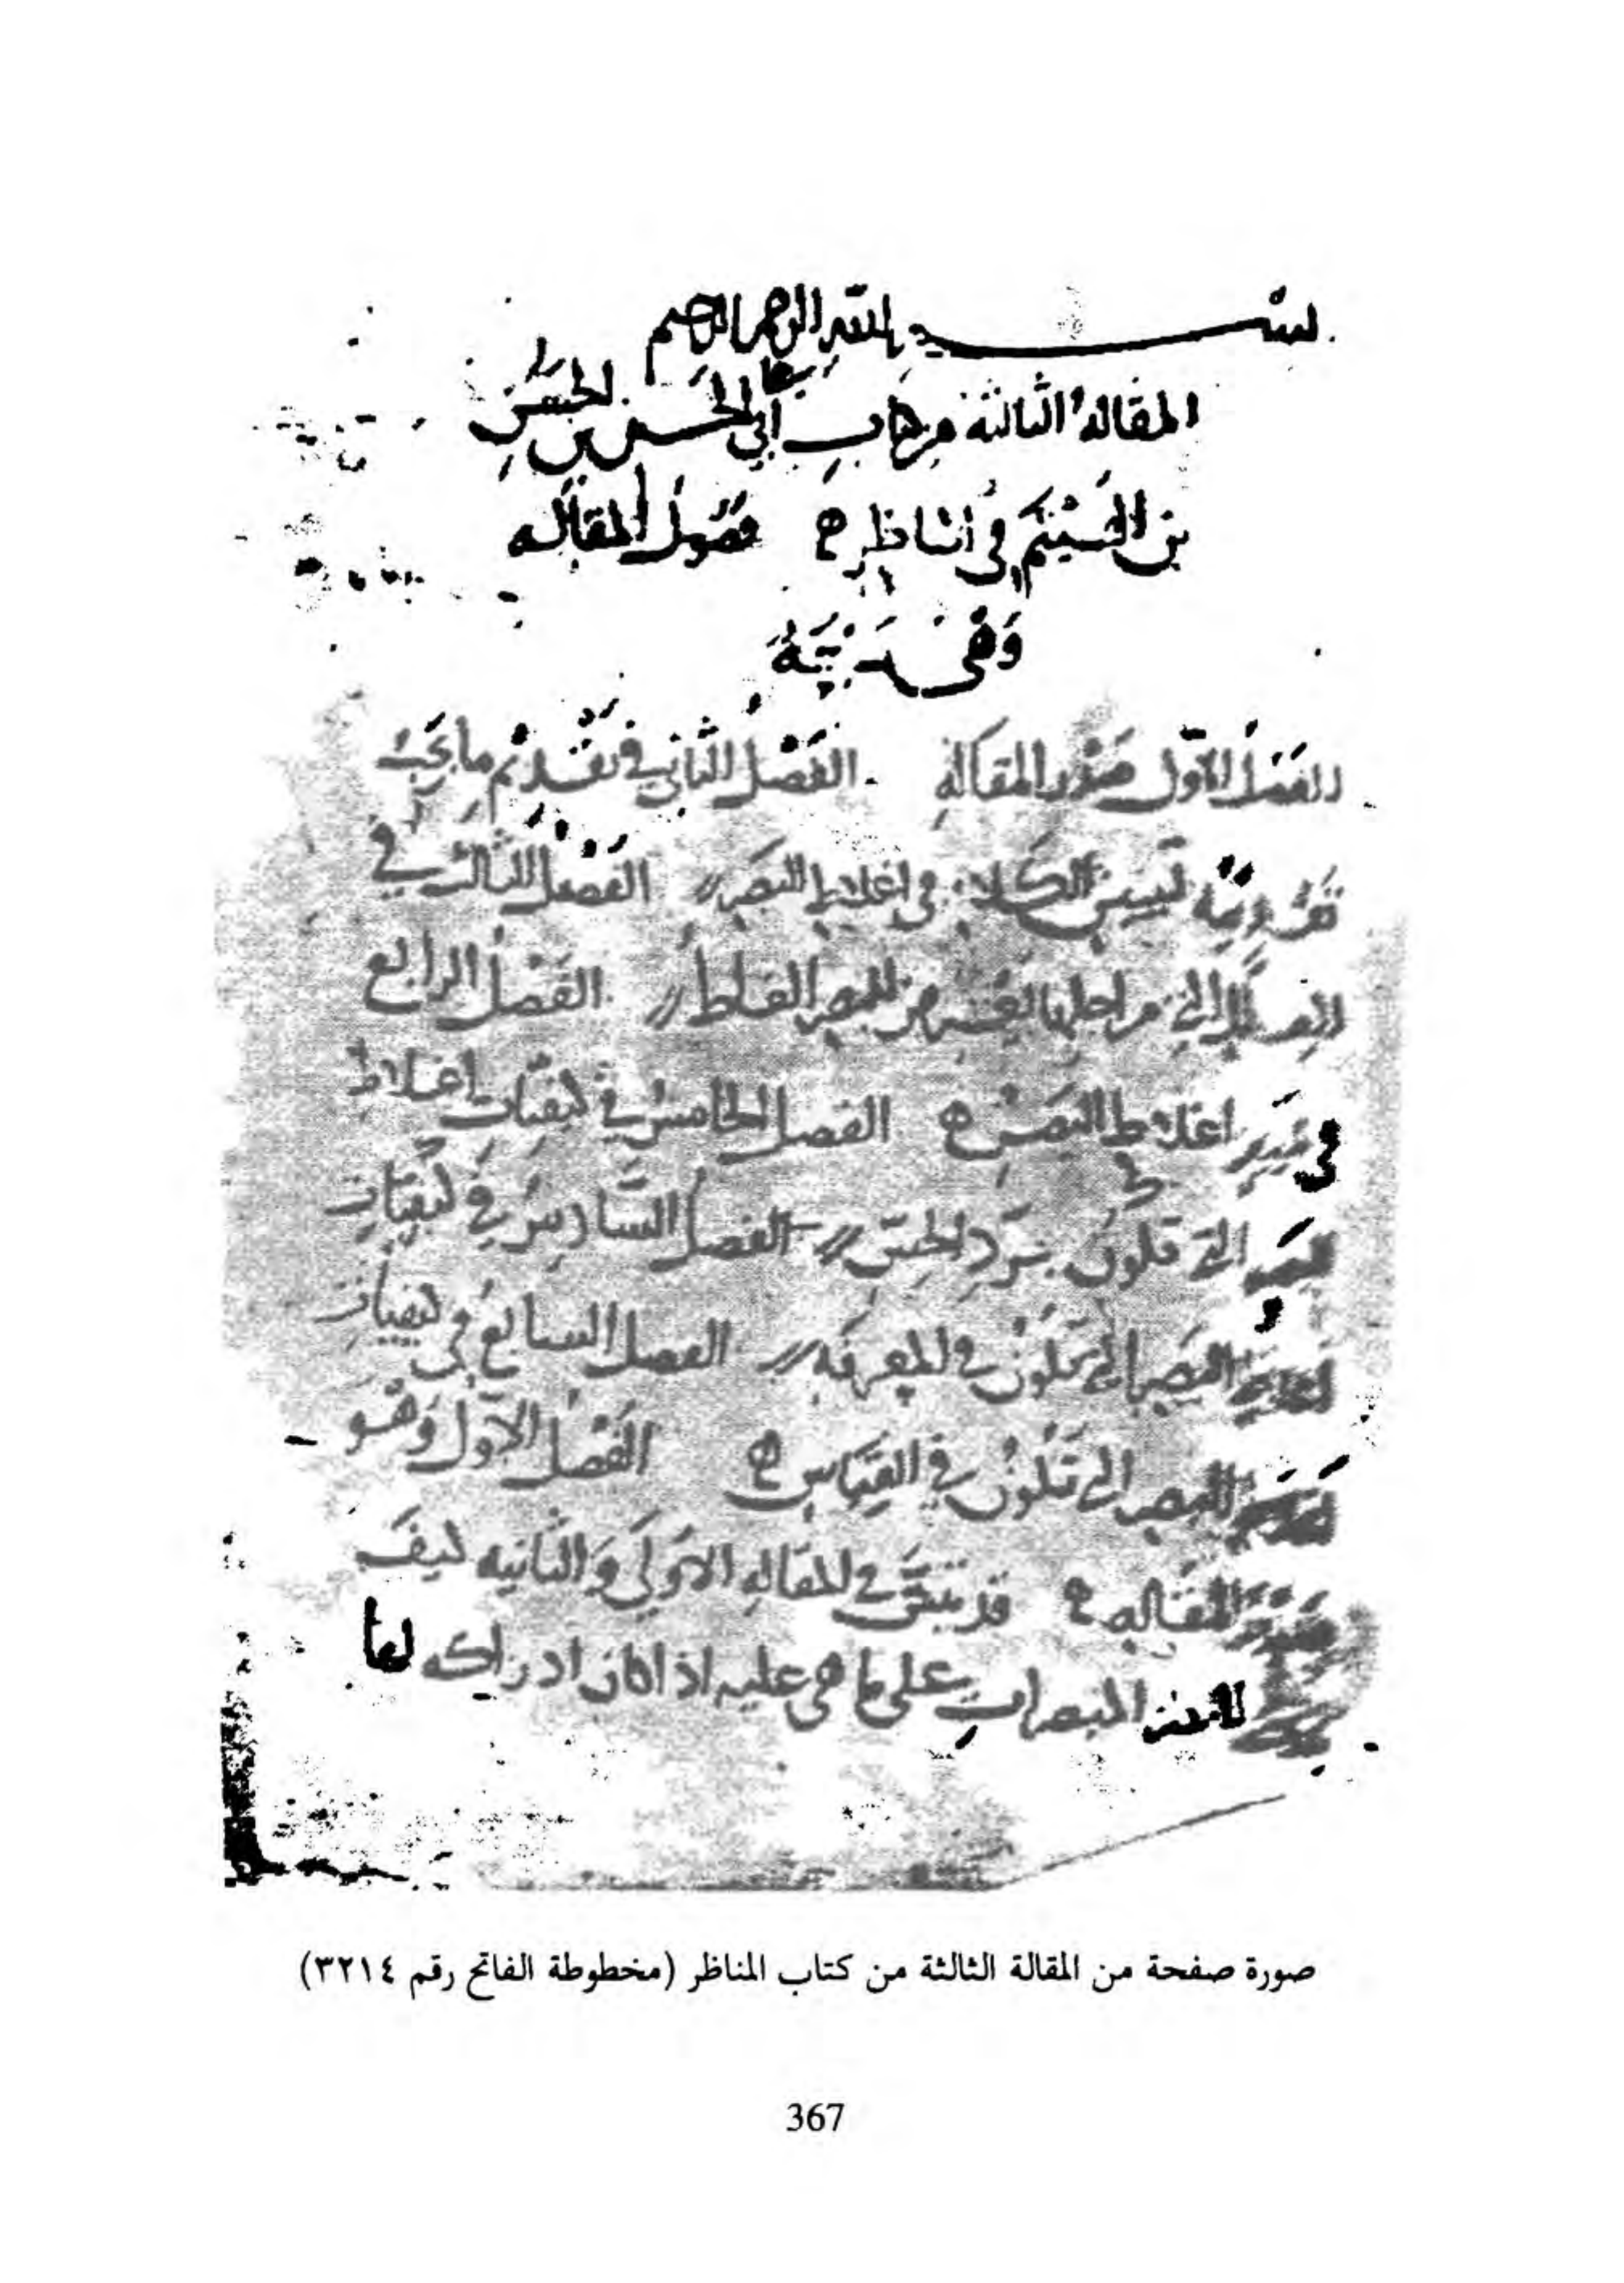 بسم الله الرحمن الرحيم
المقاله الثالثة من كتاب أبي الحسن بن الحسن
بن الهيثم في المناظر ه فصول المقاله
وهي سبعة
الفصل الأول صدر المقاله الفصل الثاني في تقديم ما يجب
تقديمه لتبيين الكلام في اغلاط البصر // الفصل الثالث في
العلل التي من اجلها يعرض للبصر الغلط // الفصل الرابع
في تمييز اغلاط البصر ه الفصل الخامس في كيفيات اغلاط
البصر التي تكون بمجرد الحس // الفصل السادس في كيفيات
اغلاط البصر التي تكون في المعرفه // الفصل السابع في كيفيات
البصر التي تكون في القياس ه الفصل الاول وهو
صدر المقاله ه قد تبين في المقاله الاولى والثانيه كيف
المبصرات على ما هي عليه اذا كان ادراكه لها
صورة صفحة من المقالة الثالثة من كتاب المناظر (مخطوطة الفاتح رقم ٣٢١٤)
367